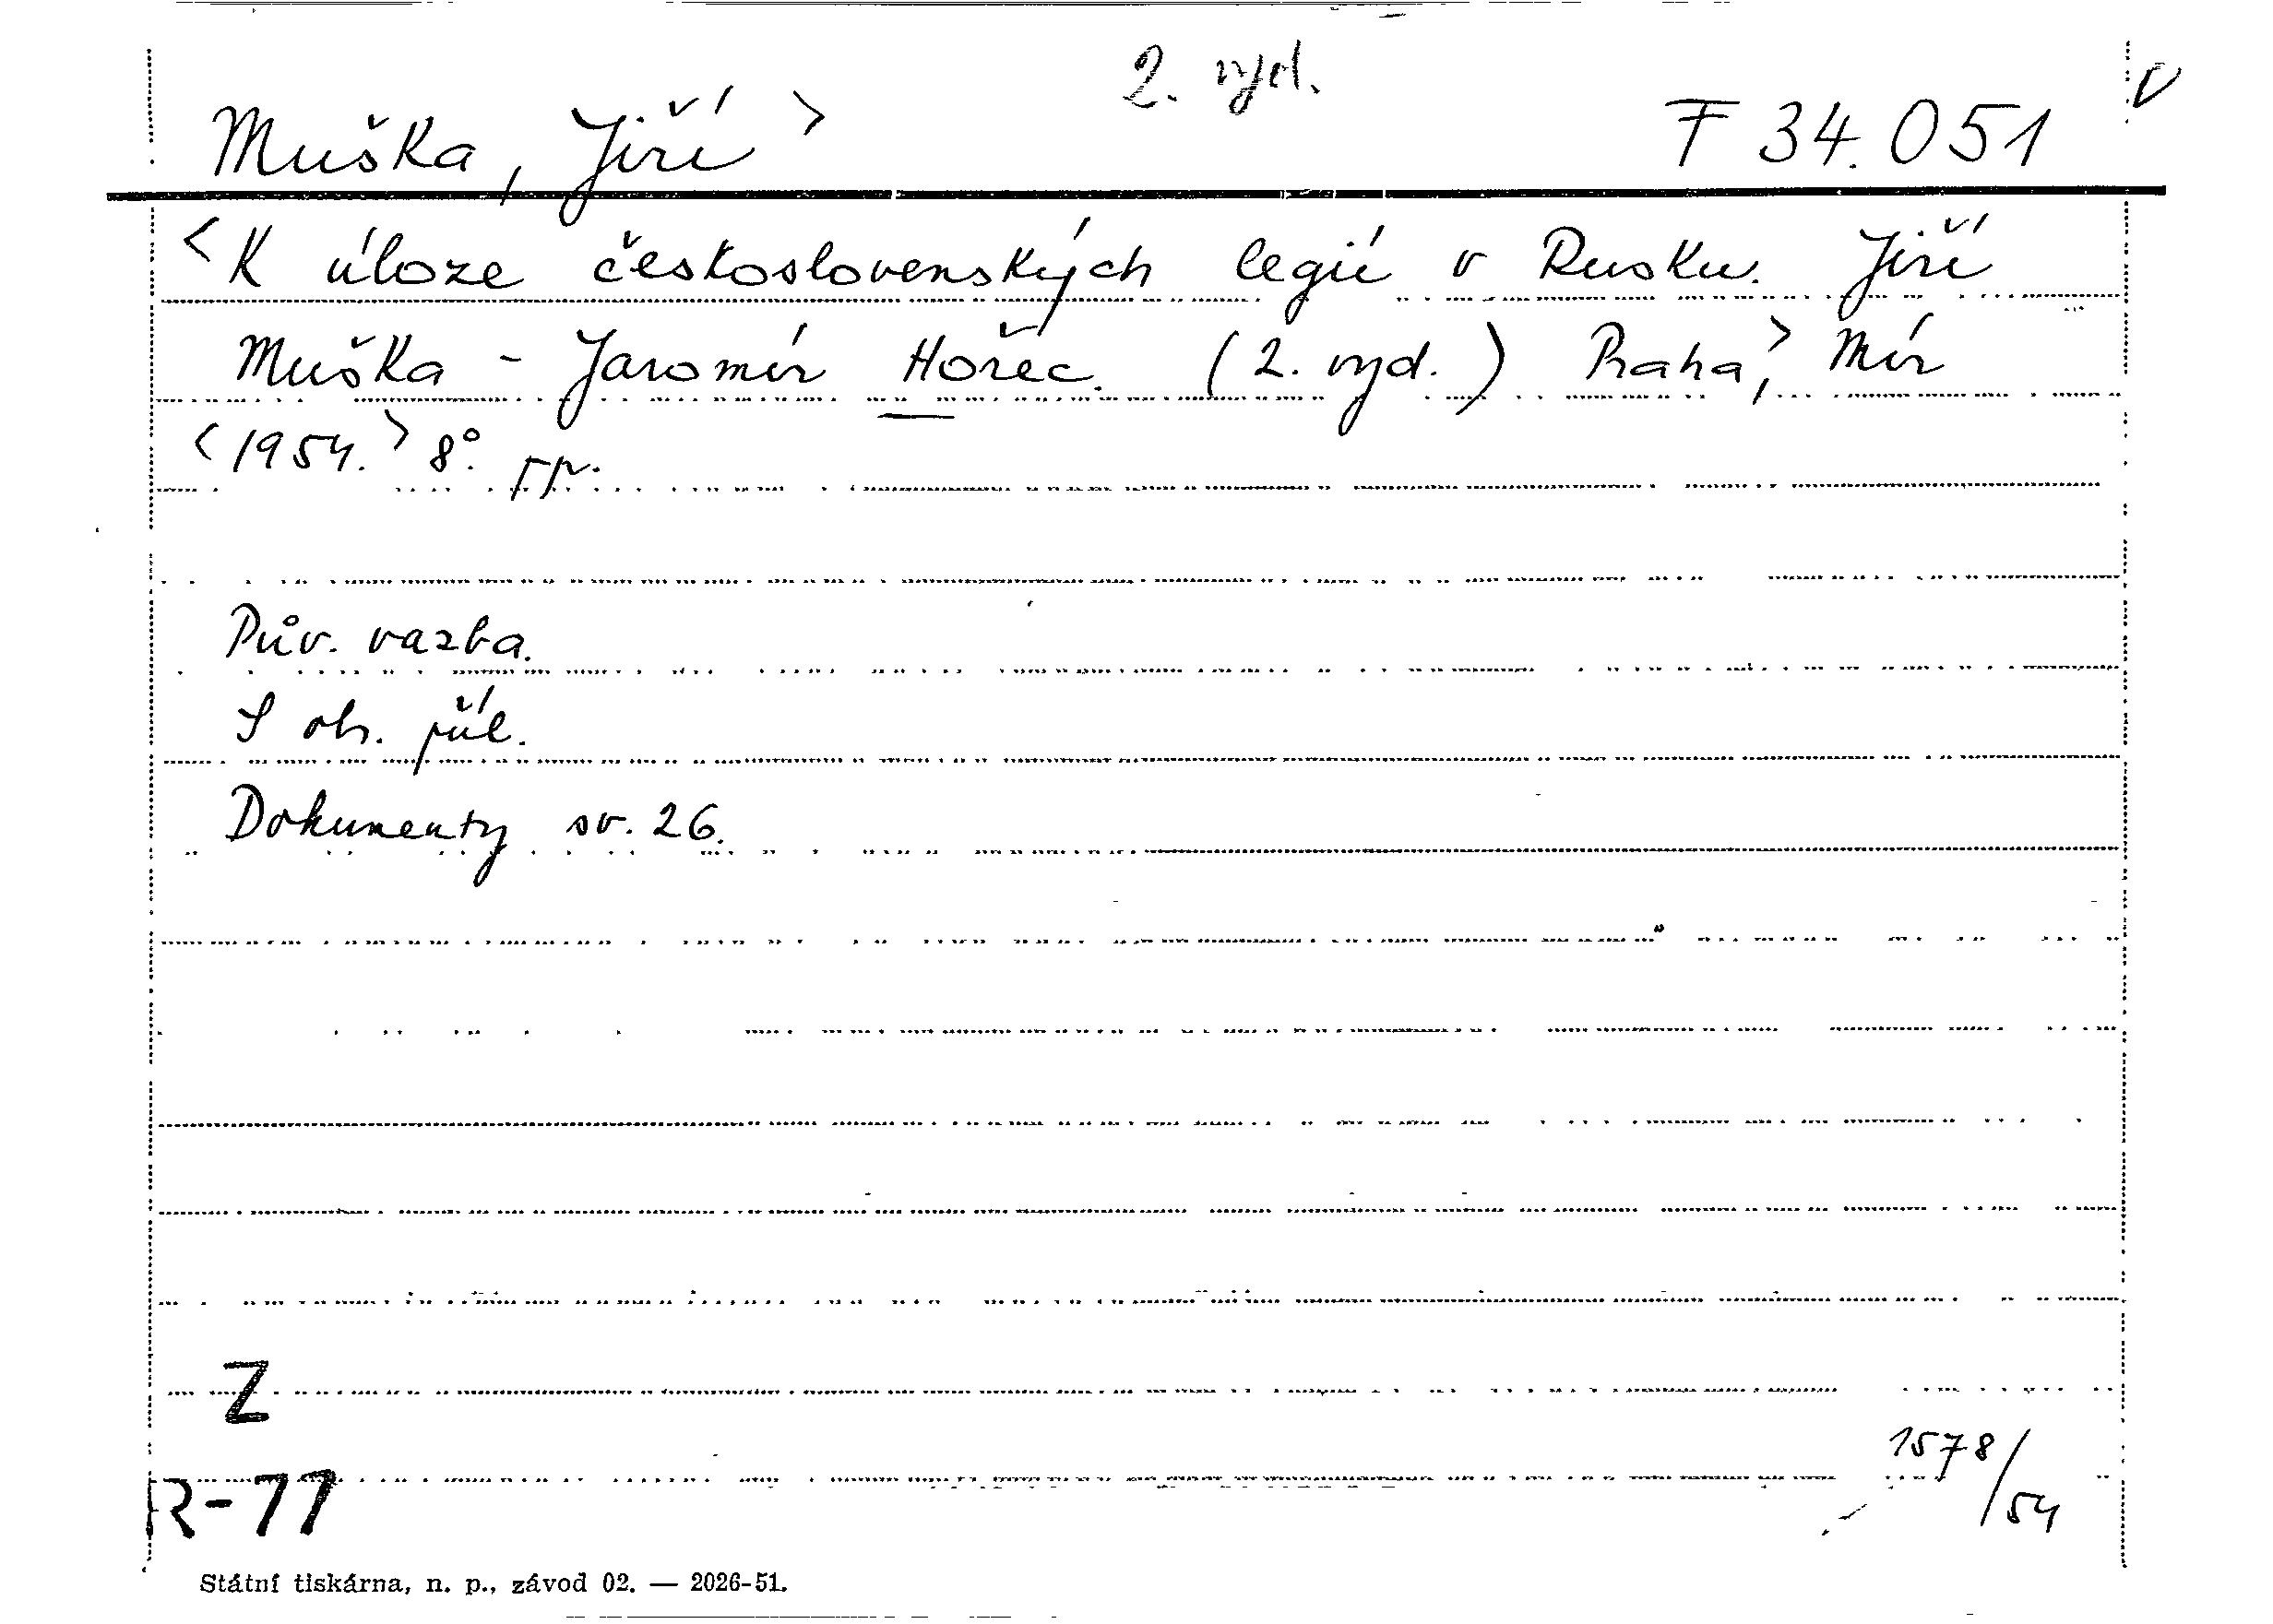 2. vyd.
Muška, Jiří > F 34.051 V
<K úloze československých legií v Rusku. Jiří
Muška - Jaromír Hořec. (2. vyd.) Praha,> Mír
<1954.> 8°.
Pův. vazba.
S obr. příl.
Dokumenty sv. 26.
Z
R-77
1578/54
Státní tiskárna, n. p., závod 02. — 2026-51.